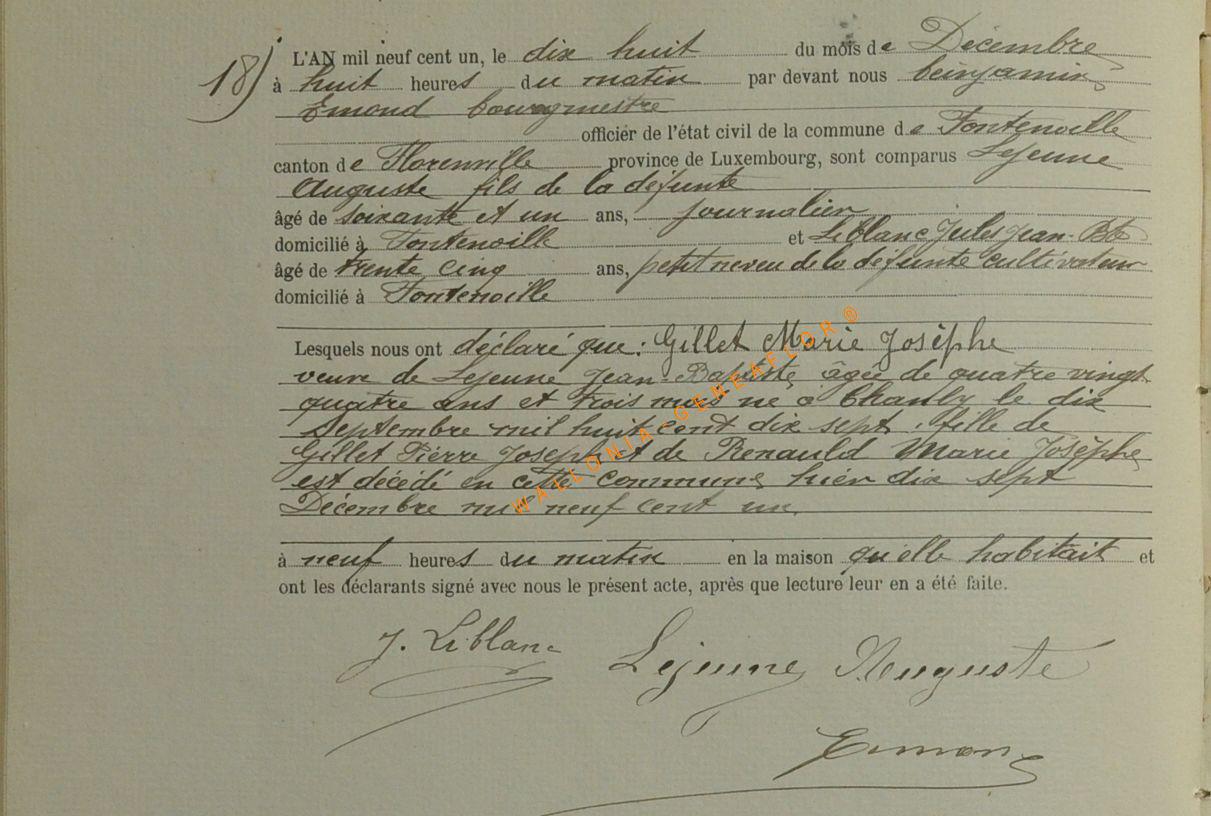 18)
L'AN mil neuf cent un, le dix huit du mois de Décembre
à huit heures du matin par devant nous benjamin
Emond bourgmestre
officier de l'état civil de la commune de Fontenoille
canton de Florenville province de Luxembourg, sont comparus Lejeune
Auguste fils de la défunte
âgé de soixante et un ans, journalier
domicilié à Fontenoille et Leblanc Jules Jean-Bte
âgé de trente cinq ans, petit neveu de la défunte cultivateur
domicilié à Fontenoille
Lesquels nous ont déclaré que: Gillet Marie Josèphe
veuve de Lejeune Jean-Baptiste, âgée de quatre vingt
quatre ans et trois mois né à Chanly le dix
septembre mil huit cent dix sept, fille de
Gillet Pierre Joseph et de Renauld Marie Josèphe,
est décédé en cette commune, hier dix sept
Décembre mil neuf cent un.
à neuf heures du matin en la maison qu'elle habitait et
ont les déclarants signé avec nous le présent acte, après que lecture leur en a été faite.
J. Leblanc Lejeune Auguste
Emond
WALLONIA-GENEAFLOR®